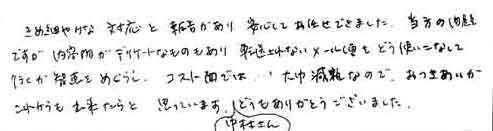 きめ細やかな 対応と 報告があり 安心してお任せできました. 当方の問題
ですが 内容物がデリケートなものもあり 転送されないメール便をどう使いこなして
行くか智恵をめぐらし、コスト面では… 大巾減額なので、おつきあいが
これからも出来たらと 思っています. どうもありがとうございました.
中村さん